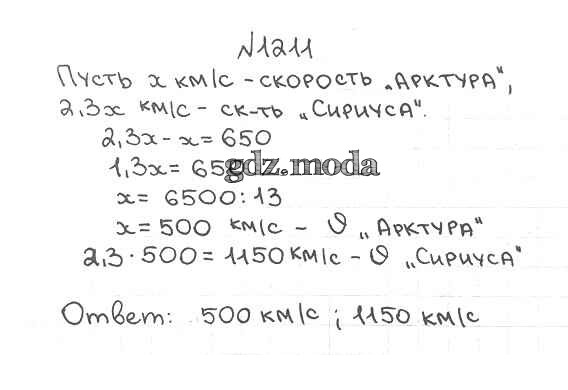 №1211
Пусть x км/с - скорость „Арктура",
2,3x км/с - ск-ть „Сириуса".
2,3x - x = 650
1,3x = 650
gdz.moda
x = 6500:13
x = 500 км/с - υ „Арктура"
2,3 · 500 = 1150 км/с - υ „Сириуса"
Ответ: 500 км/с ; 1150 км/с